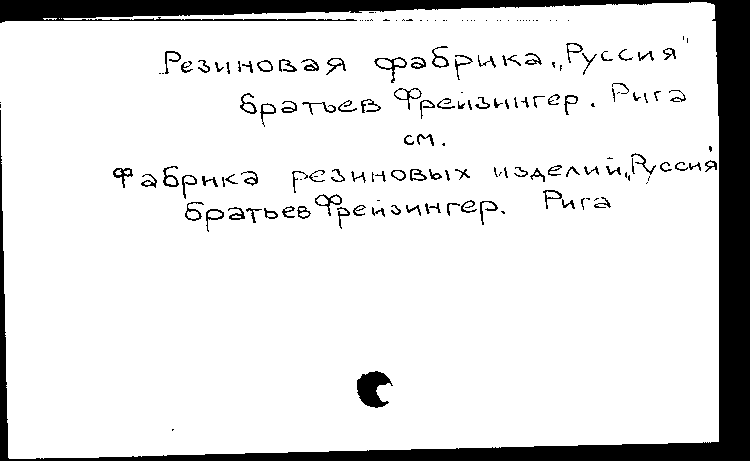 Резиновая фабрика „Руссия"
братьев Фрейзингер. Рига
см.
Фабрика резиновых изделий „Руссия"
братьев Фрейзингер. Рига